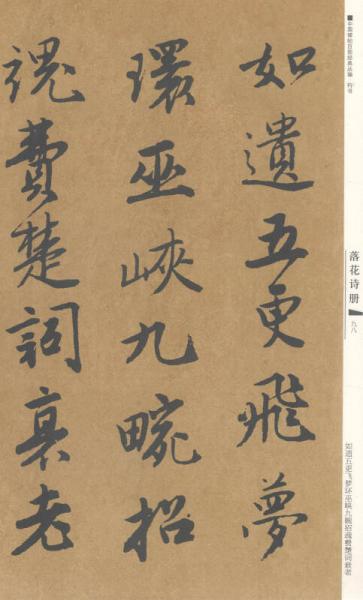 如遗五更飛夢
環巫峽九畹招
魂費楚詞衰老
■中国书法百部经典丛编 行书
落花诗册
九八
如遗五更飞梦环巫峡九畹招魂费楚词衰老